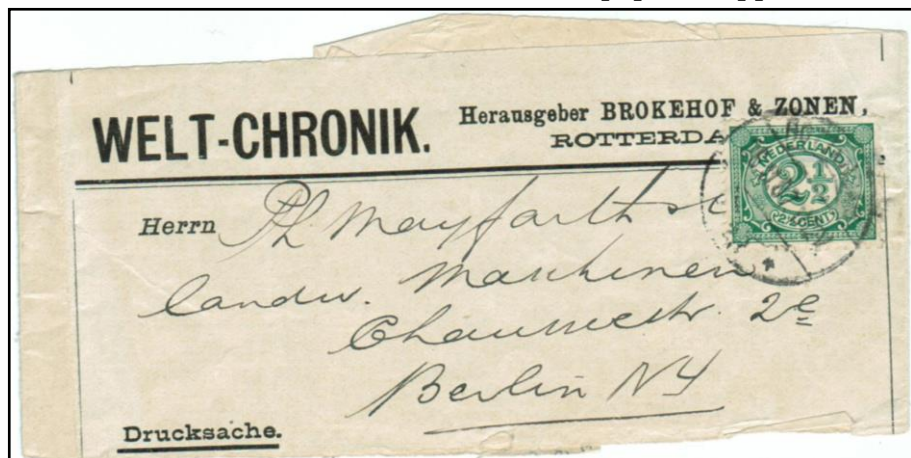 WELT-CHRONIK.
Herausgeber BROKEHOF & ZONEN,
ROTTERDA
NEDERLAND
2½
2½ CENT
Herrn Ph. Mayfarth
landw. Maschinen
Chausseestr. 2e
Berlin N4
Drucksache.